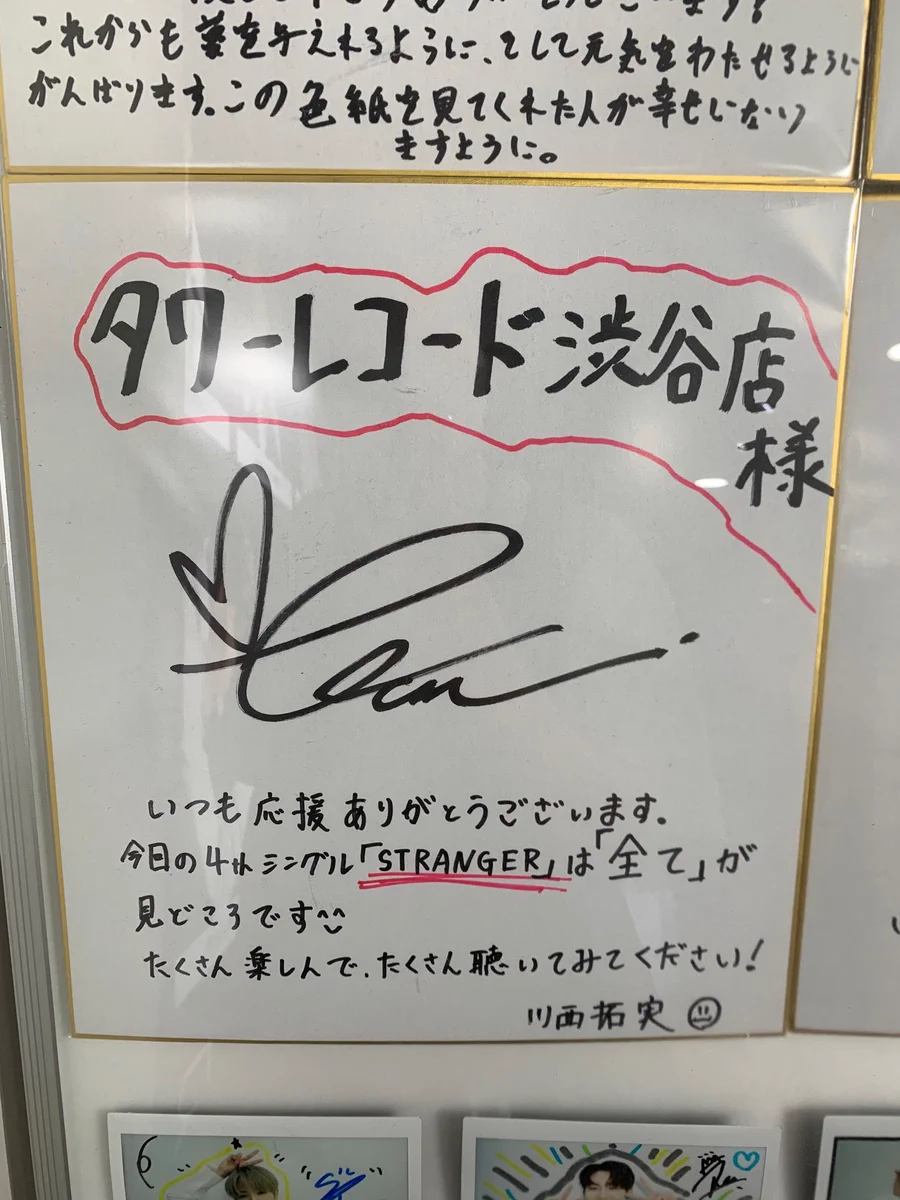 これからも夢を与えれるように、そして元気をわたせるように
がんばります。この色紙を見てくれた人が幸せになり
ますように。
タワーレコード渋谷店
様
いつも応援ありがとうございます。
今日の4thシングル「STRANGER」は「全て」が
見どころです^^
たくさん楽しんで、たくさん聴いてみてください!
川西拓実